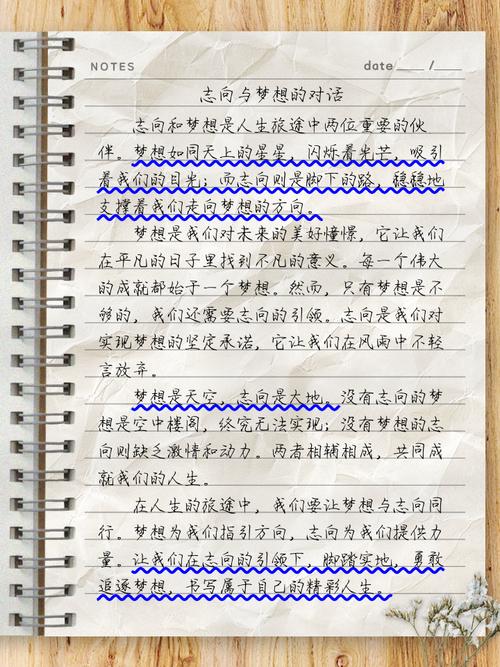 NOTES date ____ / ____
志向与梦想的对话
志向和梦想是人生旅途中两位重要的伙
伴。梦想如同天上的星星，闪烁着光芒，吸引
着我们的目光；而志向则是脚下的路，稳稳地
支撑着我们走向梦想的方向。
梦想是我们对未来的美好憧憬，它让我们
在平凡的日子里找到不凡的意义。每一个伟大
的成就都始于一个梦想。然而，只有梦想是不
够的，我们还需要志向的引领。志向是我们对
实现梦想的坚定承诺，它让我们在风雨中不轻
言放弃。
梦想是天空，志向是大地。没有志向的梦
想是空中楼阁，终究无法实现；没有梦想的志
向则缺乏激情和动力。两者相辅相成，共同成
就我们的人生。
在人生的旅途中，我们要让梦想与志向同
行。梦想为我们指引方向，志向为我们提供力
量。让我们在志向的引领下，脚踏实地，勇敢
追逐梦想，书写属于自己的精彩人生。